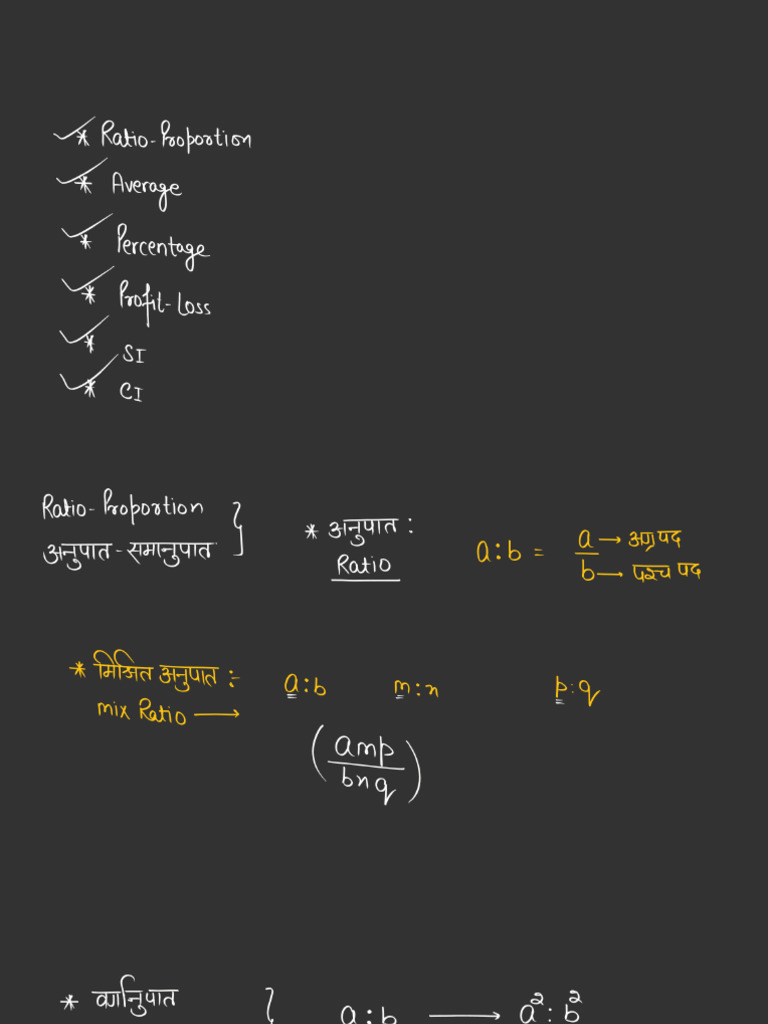 * Ratio-Proportion
* Average
* Percentage
* Profit-Loss
* SI
* CI
Ratio-Proportion
अनुपात-समानुपात
* अनुपात :
Ratio
a:b = a/b
a → अग्रपद
b → पश्च पद
* मिश्रित अनुपात :-
mix Ratio →
a:b m:n p:q
(amp/bnq)
* वर्गानुपात
a:b → a²:b²